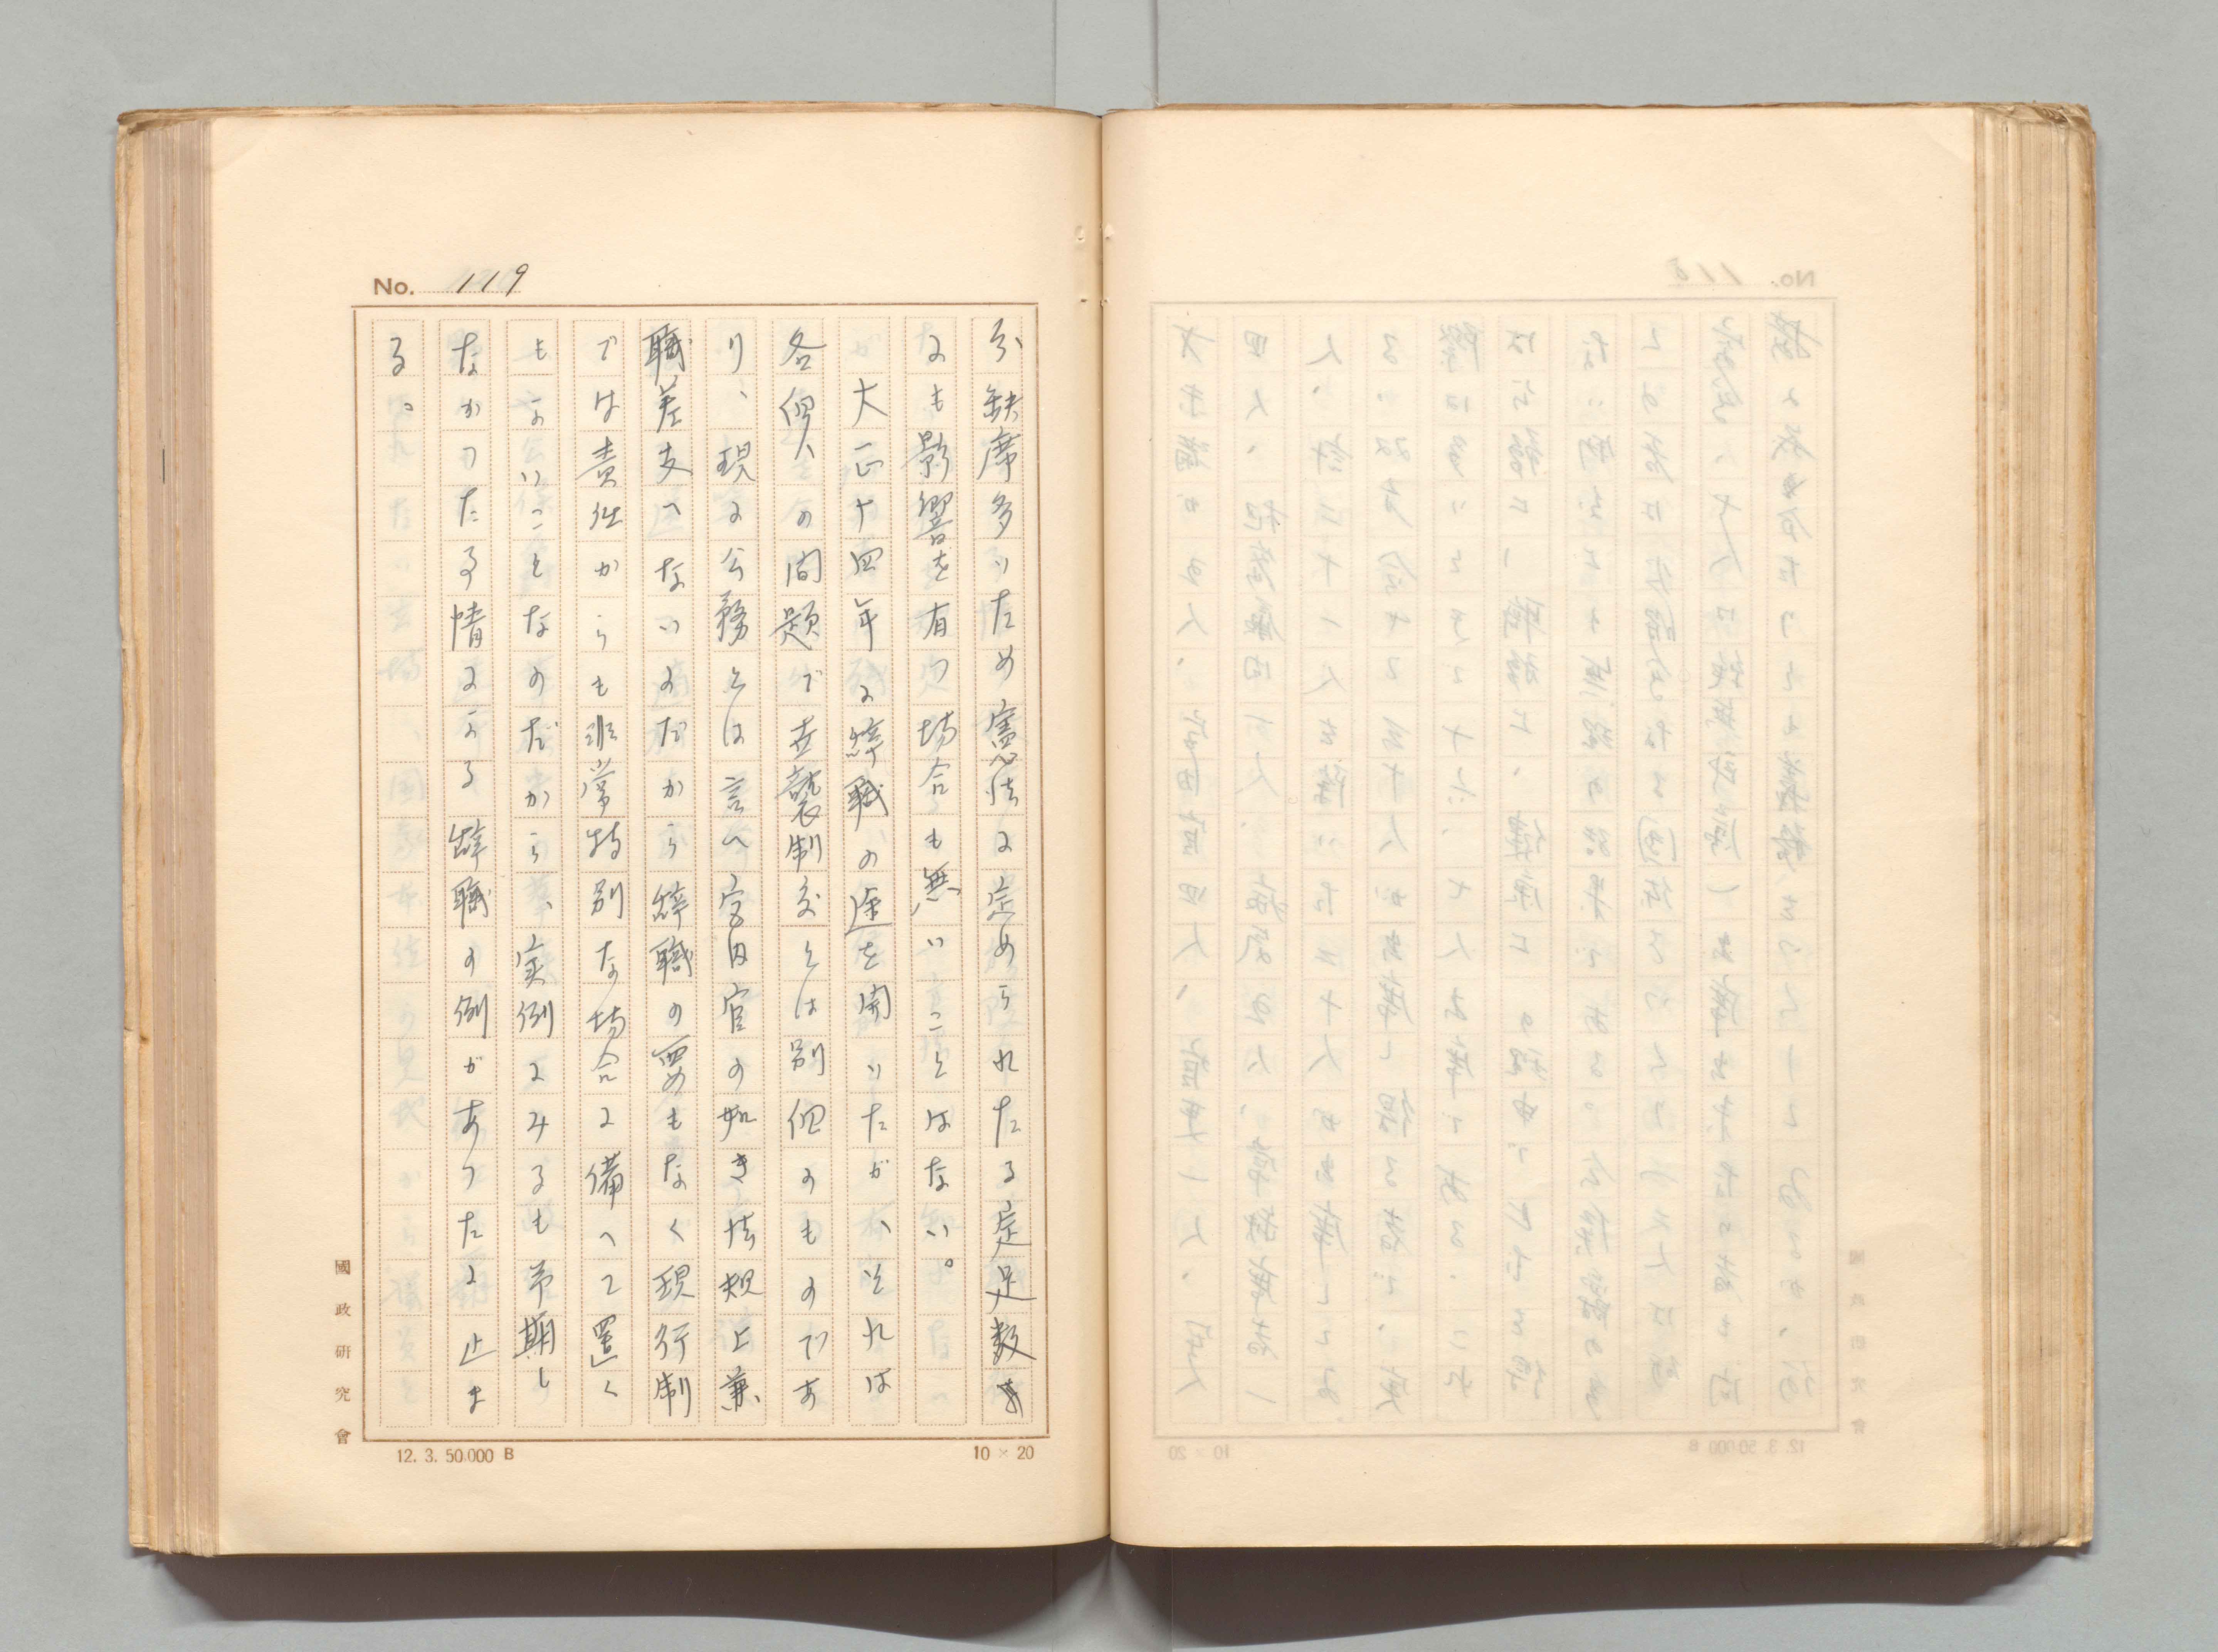 No. 119
が缺席多いため憲法に定められたる定足数等
にも影響を有つ場合も無いことはない。
大正十四年に辞職の途を開いたが、それは
各個人の問題で世襲制度とは別個のものであ
り、現に公務とは言へ宮内官の如き法規上兼
職差支へないのだから辞職の要もなく現行制
では責任からも非常特別な場合に備へて置く
もよいことなのだから、実例にみるも予期し
なかつたる事情による辞職の例があつたに止ま
る。
國政研究會
12. 3. 50,000 B
10 × 20